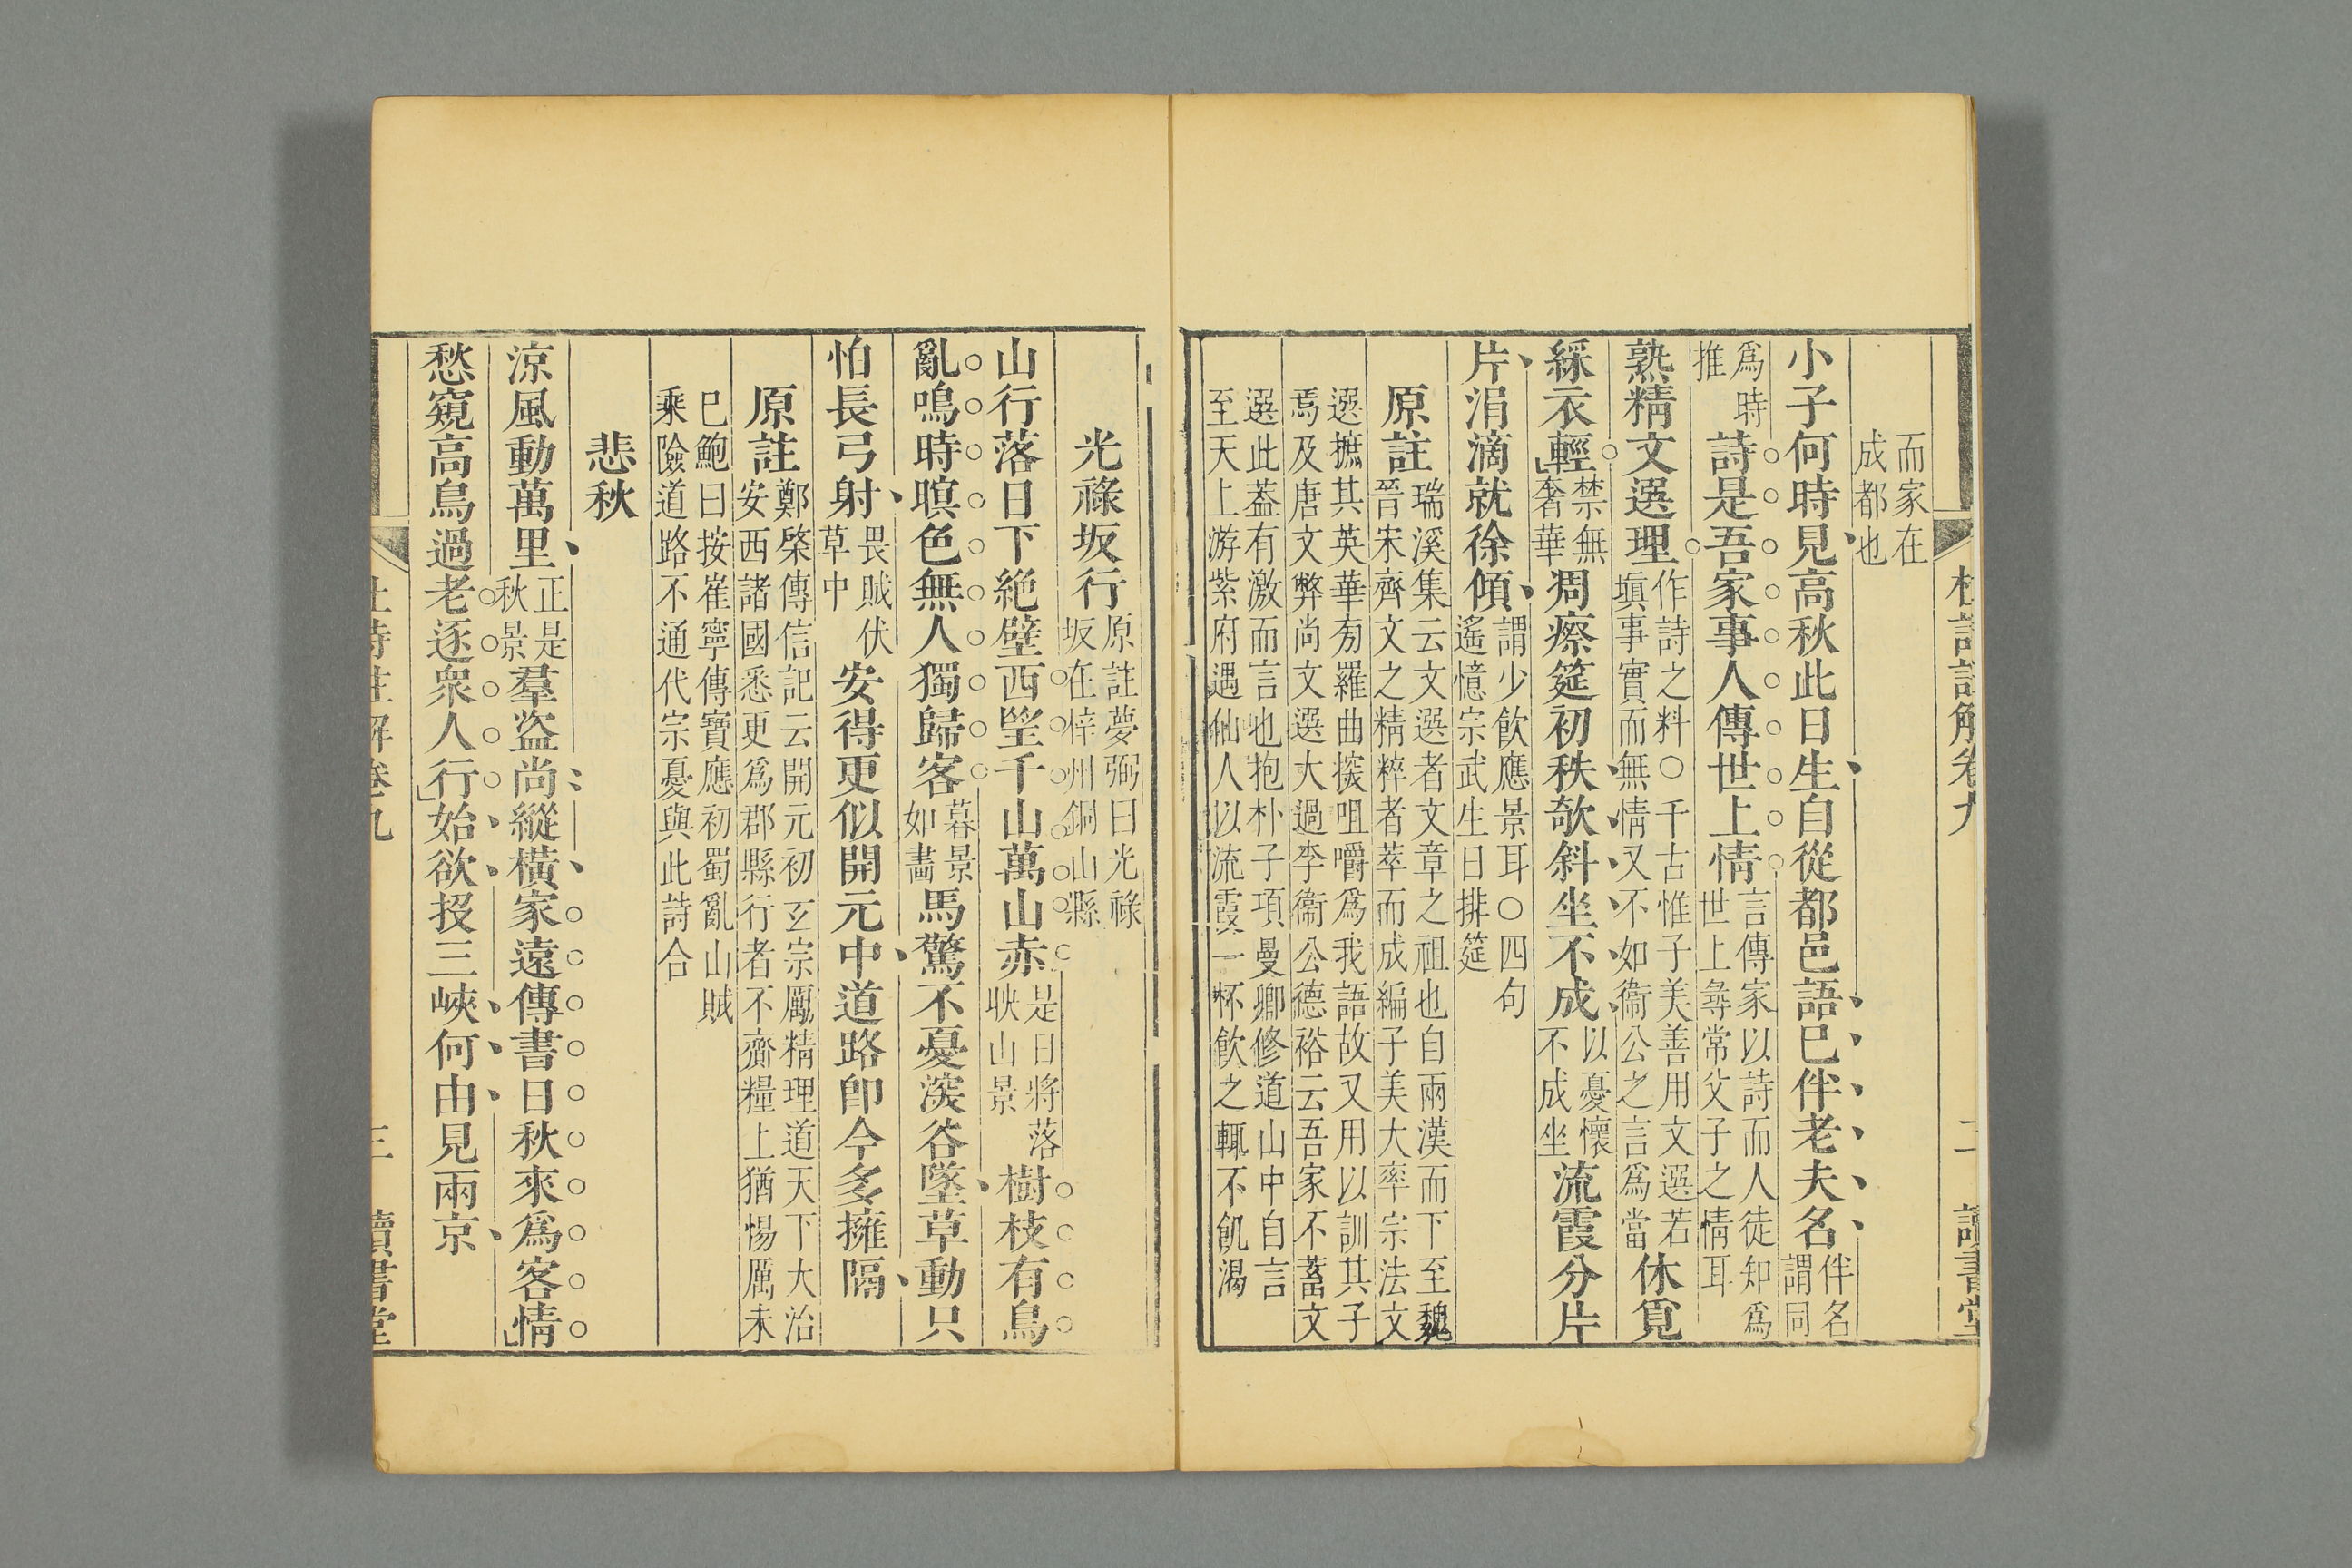 杜詩註解卷九 二 讀書堂
而家在
成都也
小子何時見高秋此日生自從都邑語已伴老夫名伴名
謂同
爲時
推
詩是吾家事人傳世上情言傳家以詩而人徒知爲
世上尋常父子之情耳
熟精文選理作詩之料○千古惟子美善用文選若
塡事實而無情又不如衞公之言爲當
休覓
綵衣輕禁無
奢華
凋瘵筵初秩欹斜坐不成以憂懷
不成坐
流霞分片
片涓滴就徐傾謂少飲應景耳○四句
遙憶宗武生日排筵
原註瑞溪集云文選者文章之祖也自兩漢而下至魏
晉宋齊文之精粹者萃而成編子美大率宗法文
選摭其英華旁羅曲採咀嚼爲我語故又用以訓其子
焉及唐文弊尚文選大過李衞公德裕云吾家不蓄文
選此葢有激而言也抱朴子項曼卿修道山中自言
至天上游紫府遇仙人以流霞一杯飲之輒不飢渴
光祿坂行原註夢弼曰光祿
坂在梓州銅山縣
山行落日下絕壁西望千山萬山赤是日將落
映山景
樹枝有鳥
亂鳴時暝色無人獨歸客暮景
如畵
馬驚不憂深谷墜草動只
怕長弓射畏賊伏
草中
安得更似開元中道路卽今多擁隔
原註鄭棨傳信記云開元初玄宗厲精理道天下大治
安西諸國悉更爲郡縣行者不齎糧上猶惕厲未
已鮑曰按崔寧傳寶應初蜀亂山賊
乘險道路不通代宗憂與此詩合
悲秋
涼風動萬里正是
秋景
羣盜尚縱橫家遠傳書日秋來爲客情
愁窺高鳥過老逐衆人行始欲投三峽何由見兩京
杜詩註解卷九 三 讀書堂